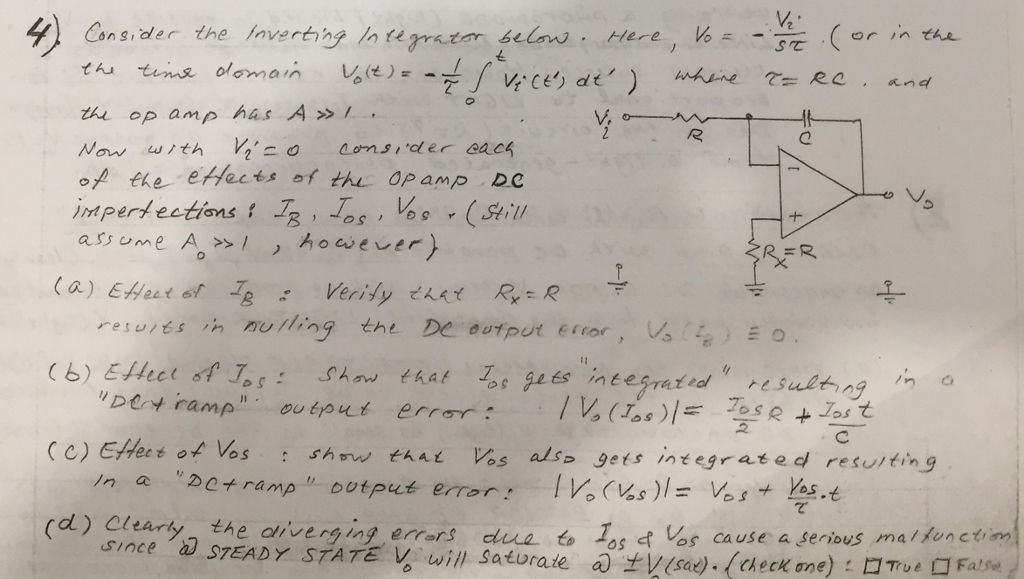 4). Consider the Inverting Integrator below. Here, Vo = - Vi/sτ . ( or in the
the time domain Vo(t) = - 1/τ ∫₀ᵗ Vi(t') dt' ) where τ = RC . and
the op amp has A >> 1 .
Vi R C
Now with Vi = 0 consider each
of the effects of the OP amp DC
- Vo
imperfections : IB, Ios, Vos . ( Still
+
assume Ao >> 1 , however )
Rx=R
(a) Effect of IB : Verify that Rx = R
results in nulling the DC output error, Vo(IB) ≡ 0.
(b) Effect of Ios : Show that Ios gets "integrated" resulting in a
"DC+ramp" output error : |Vo(Ios)| = Ios/2 R + Ios t/C
(c) Effect of Vos : show that Vos also gets integrated resulting
in a "DC+ramp" output error : |Vo(Vos)| = Vos + Vos/τ . t
(d) Clearly the diverging errors due to Ios & Vos cause a serious malfunction
since @ STEADY STATE Vo will saturate @ ±V(sat). (check one) : □ True □ False